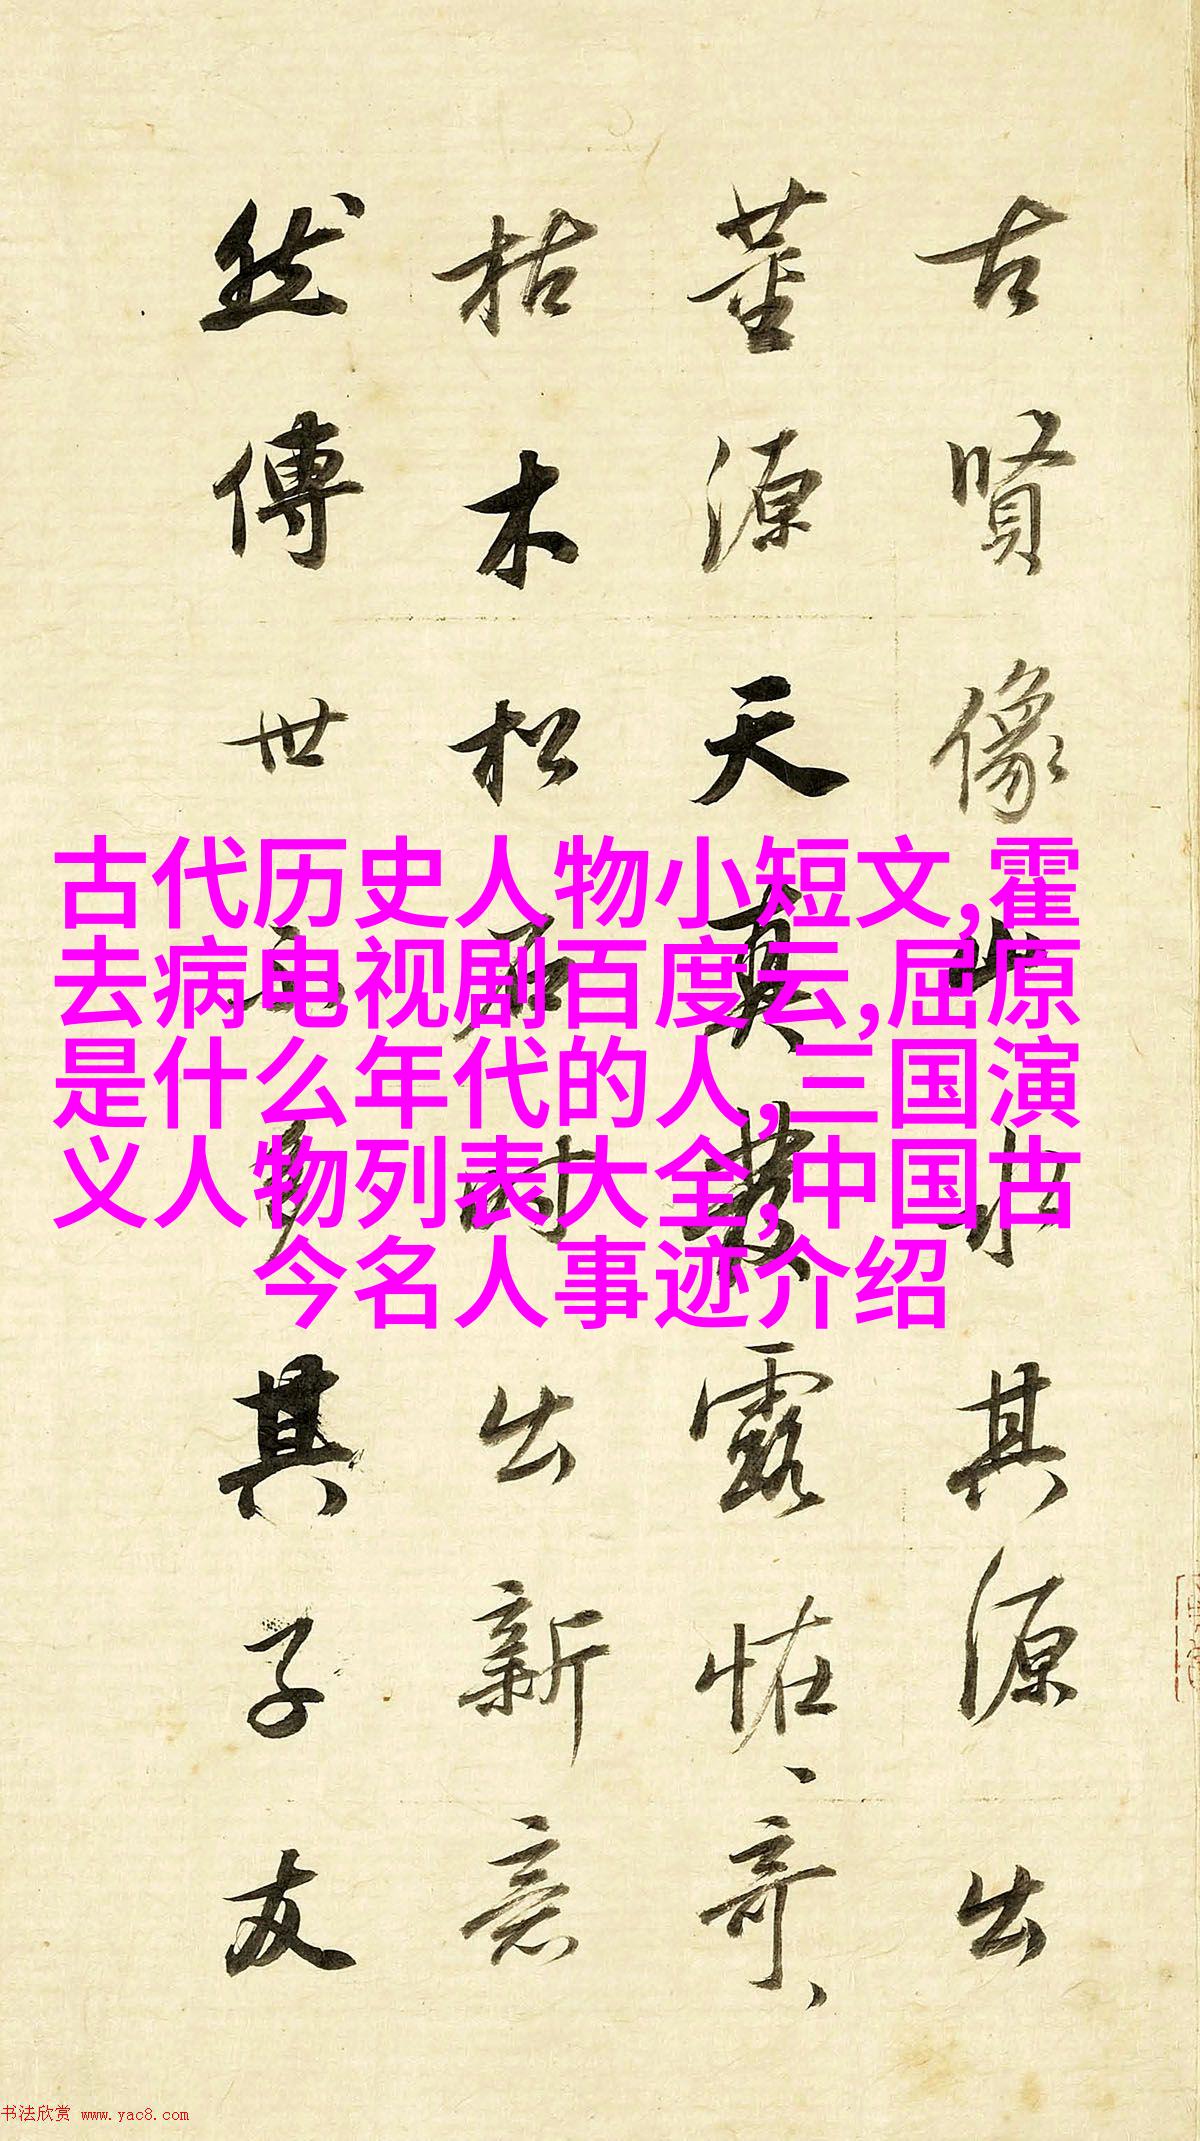 古賢像山水其源出
董源天真發露恠、奇、
枯木松石時出新意
然傳世不多其子友
古代历史人物小短文,霍
去病电视剧百度云,屈原
是什么年代的人,三国演
义人物列表大全,中国古
今名人事迹介绍
书法欣赏 www.yac8.com